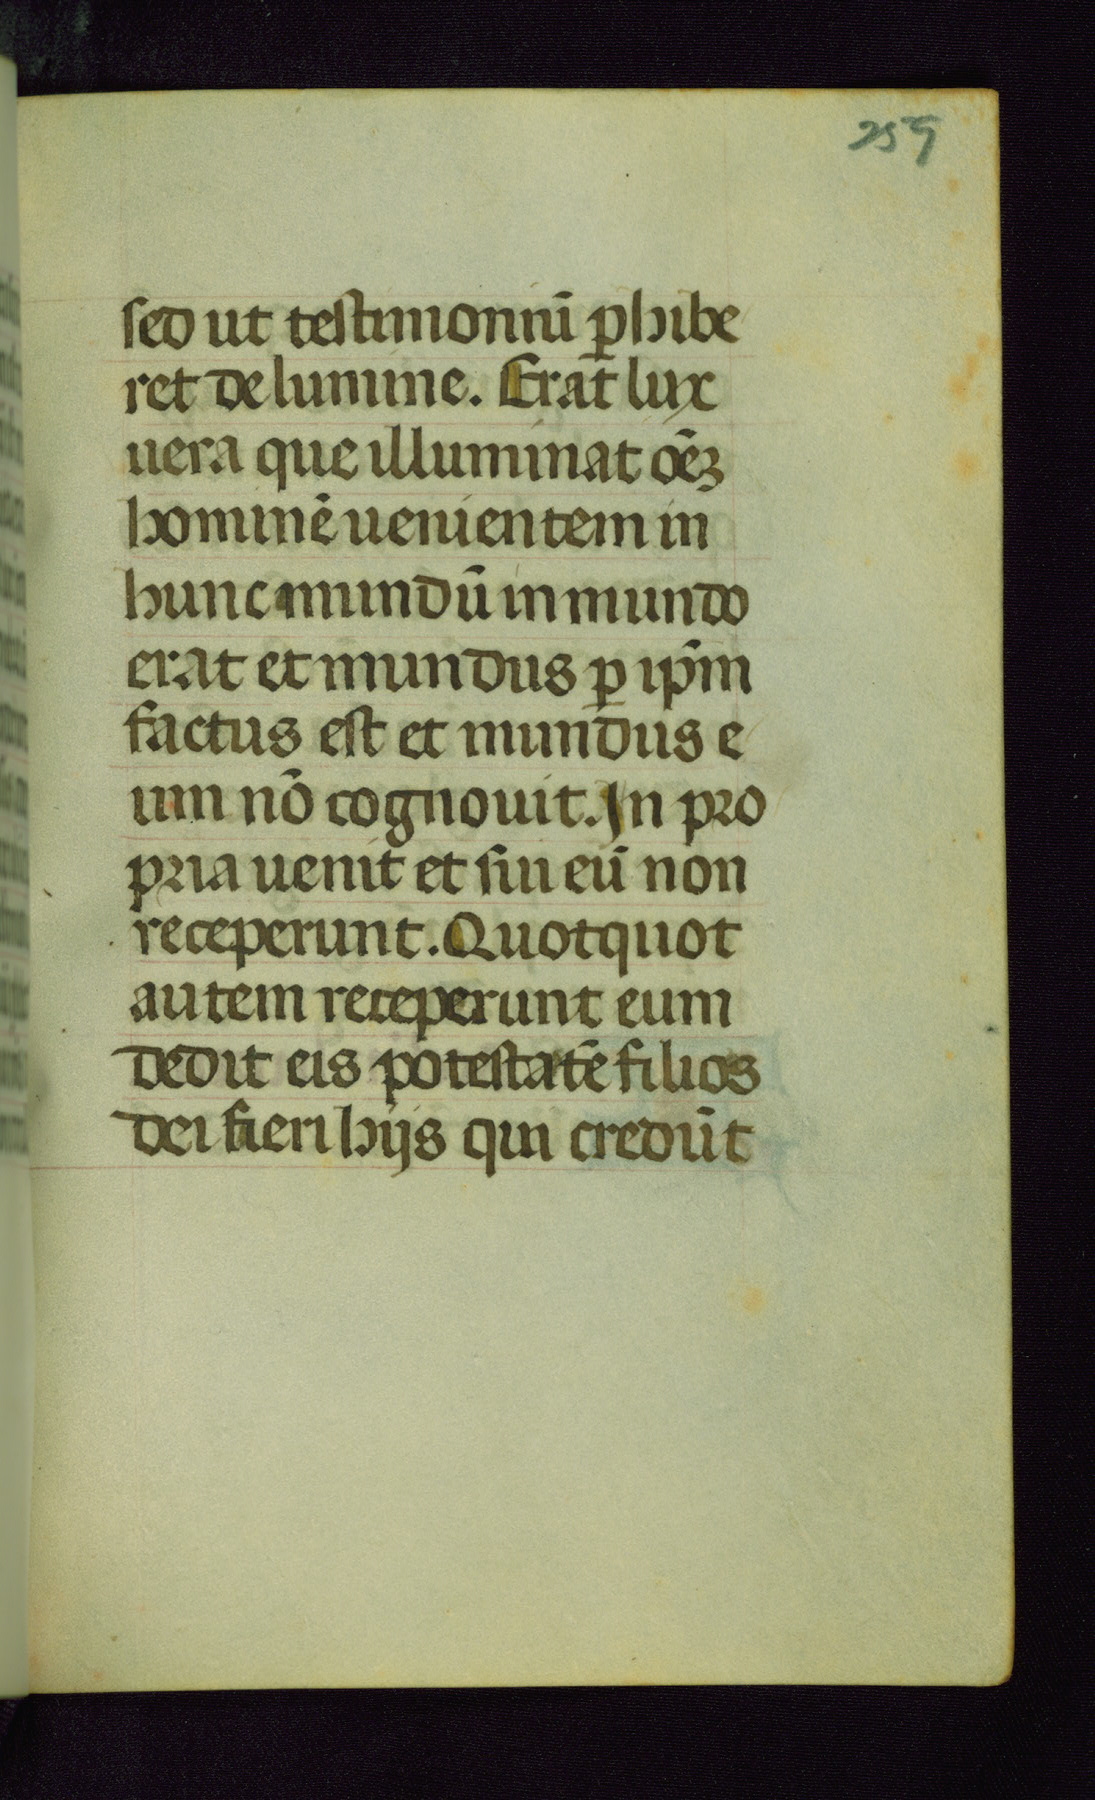 259
sed ut testimoniū ꝑhibe
ret de lumine. Erat lux
uera que illuminat oēꝫ
hominē uenientem in
hunc mundū in mundo
erat et mundus ꝑ ip̄m
factus est et mundus e
um nō cognouit. In pro
pria uenit et sui eū non
receperunt. Quotquot
autem receperunt eum
dedit eis potestatē filios
dei fieri hijs qui credūt